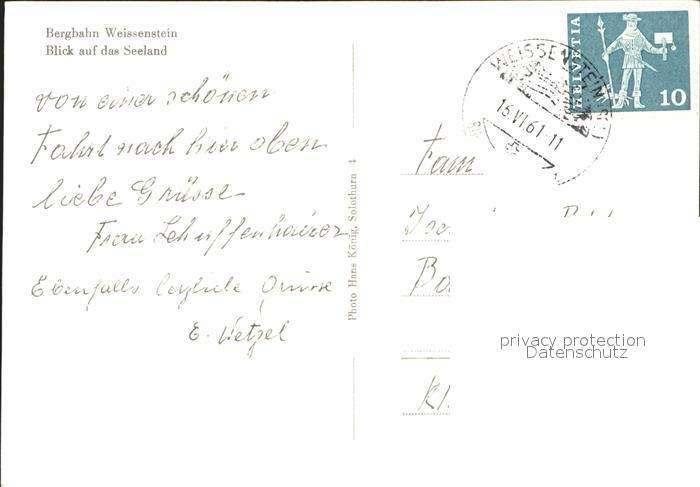 Bergbahn Weissenstein
Blick auf das Seeland
von einer schönen
Fahrt nach hier oben
liebe Grüsse
Frau
Ebenfalls herzliche Grüsse
E. Wetzel
Photo Hans König, Solothurn 4
WEISSENSTEIN
16.VI.61-11
HELVETIA
10
Fam
Bo
Kl.
privacy protection
Datenschutz